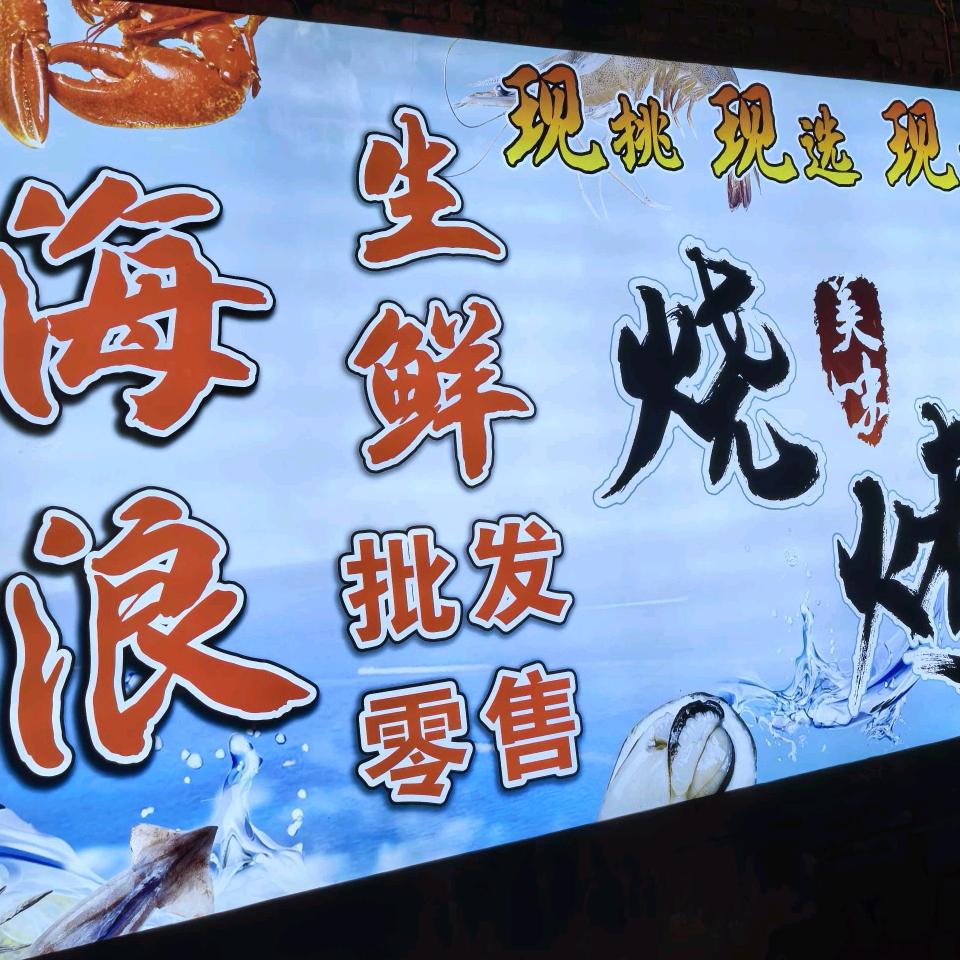 海浪
生鲜
批发
零售
现挑 现选 现
烧
美味